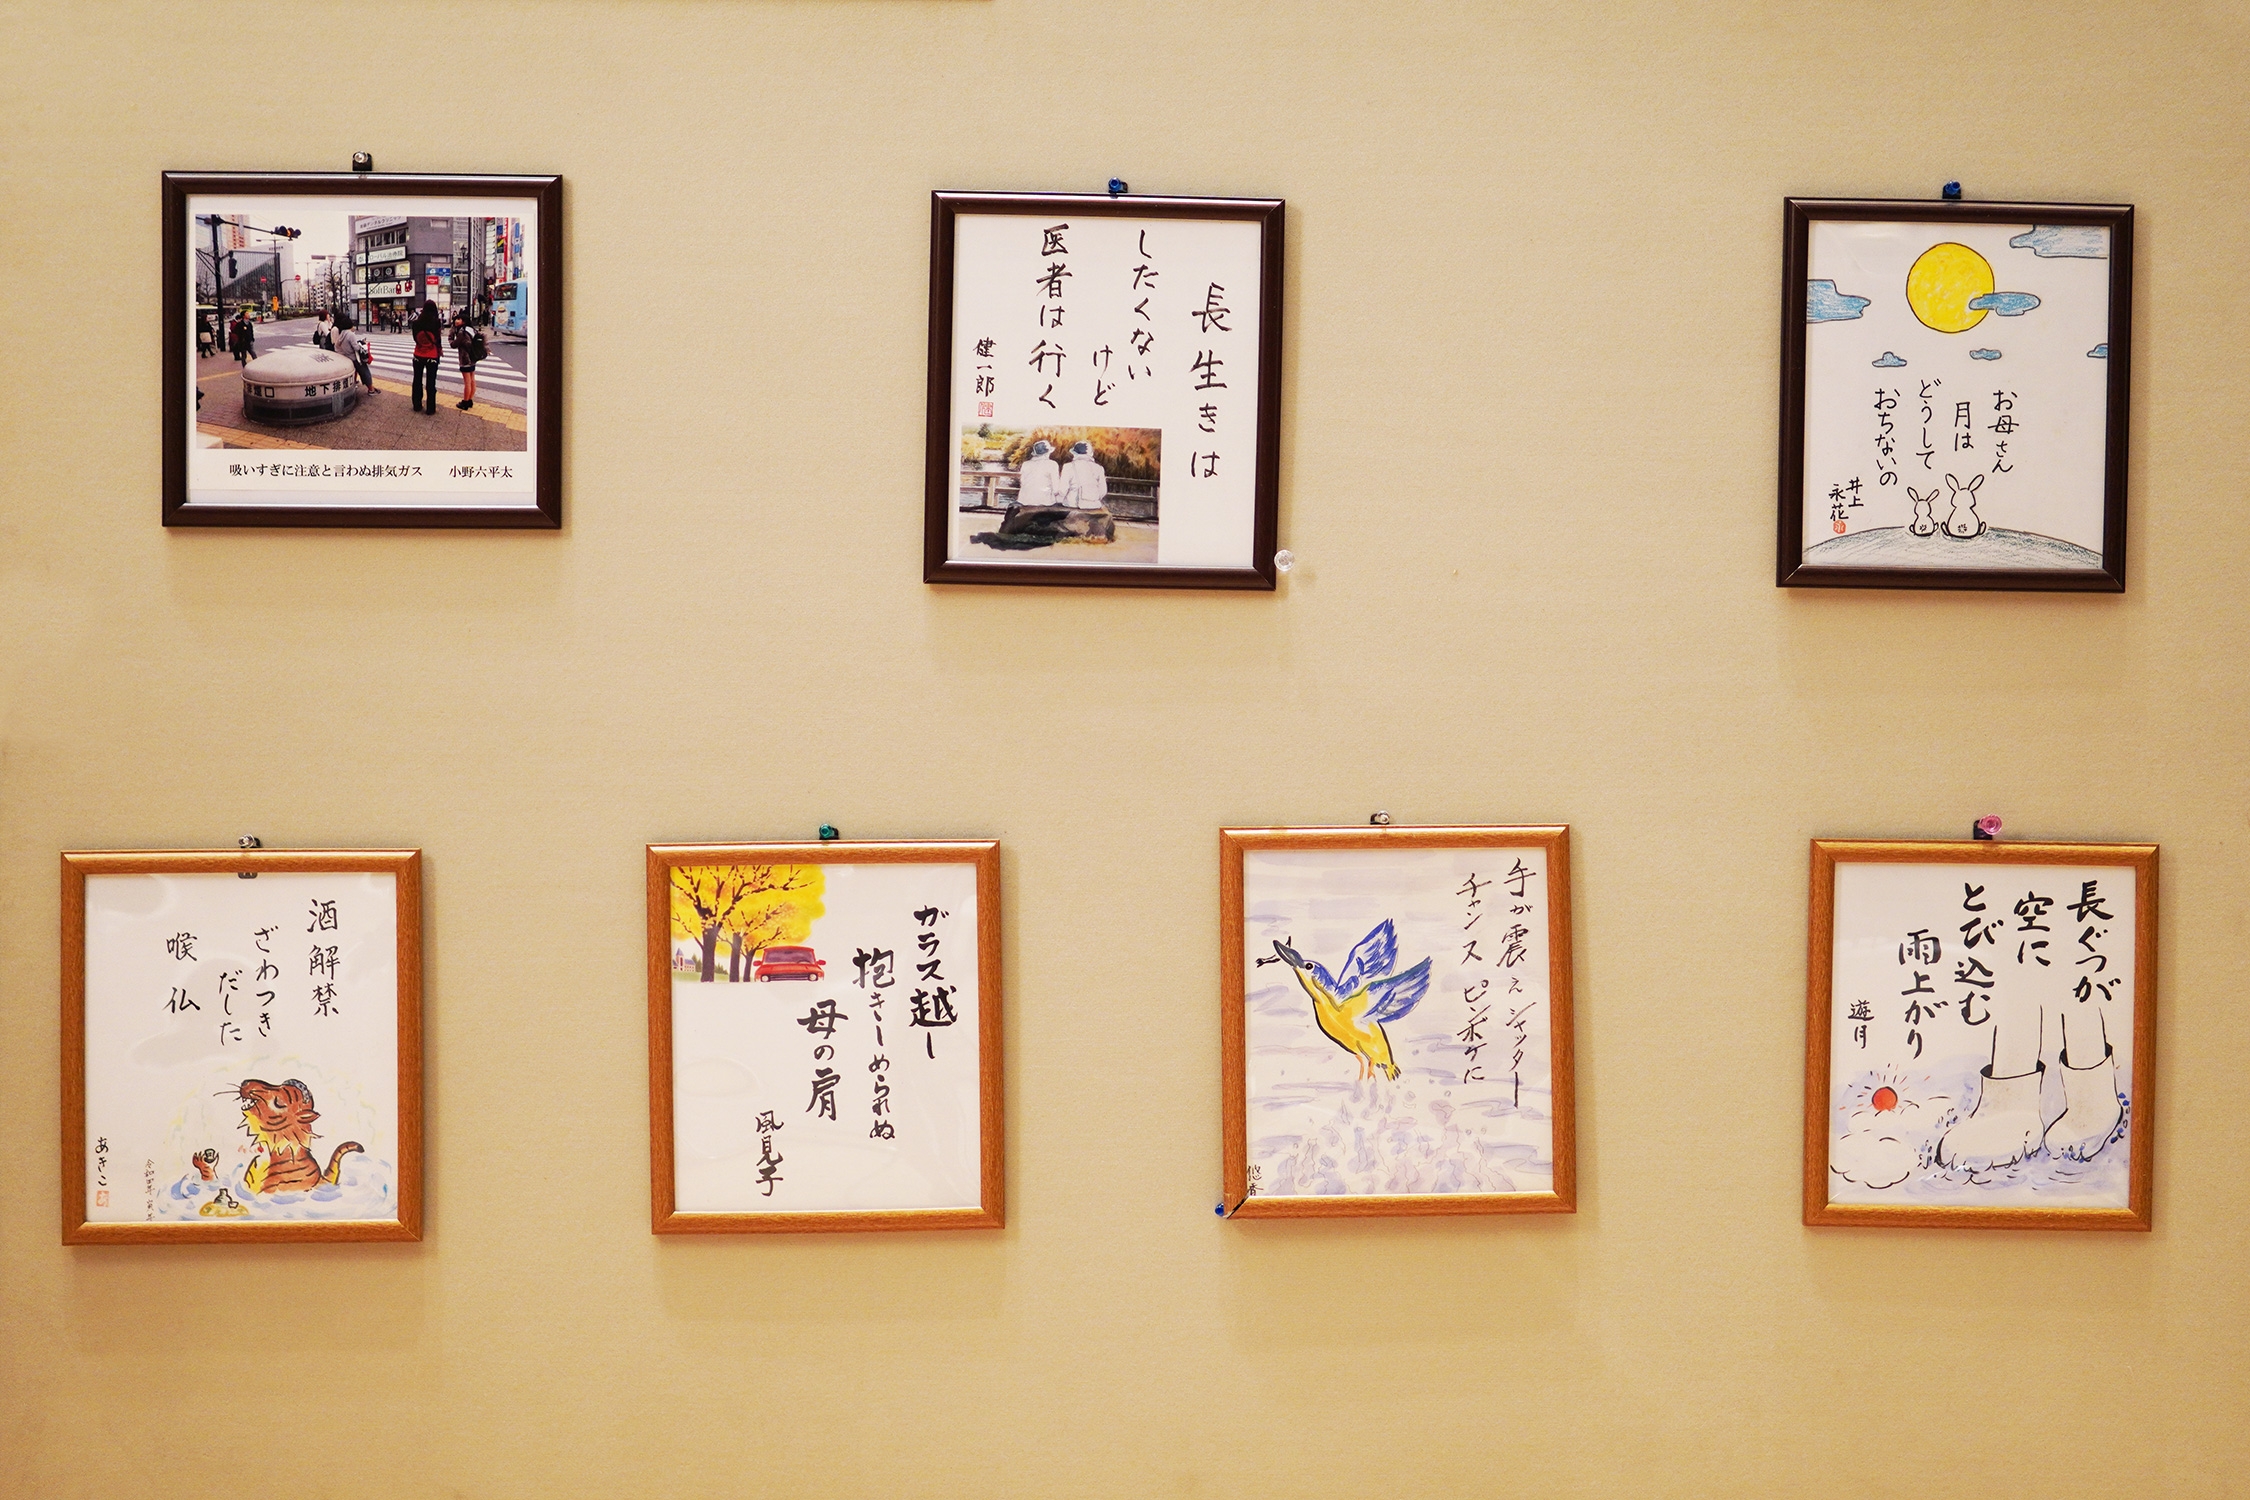 SoftBank
地下排煙口
吸いすぎに注意と言わぬ排気ガス 小野六平太
長生きは
したくない
けど
医者は行く
健一郎
お母さん
月は
どうして
おちないの
井上
永花
酒解禁
ざわつき
だした
喉仏
あきこ
ガラス越し
抱きしめられぬ
母の肩
風見子
手が震えシャッター
チャンスピンボケに
悠香
長ぐつが
空に
とび込む
雨上がり
遊月